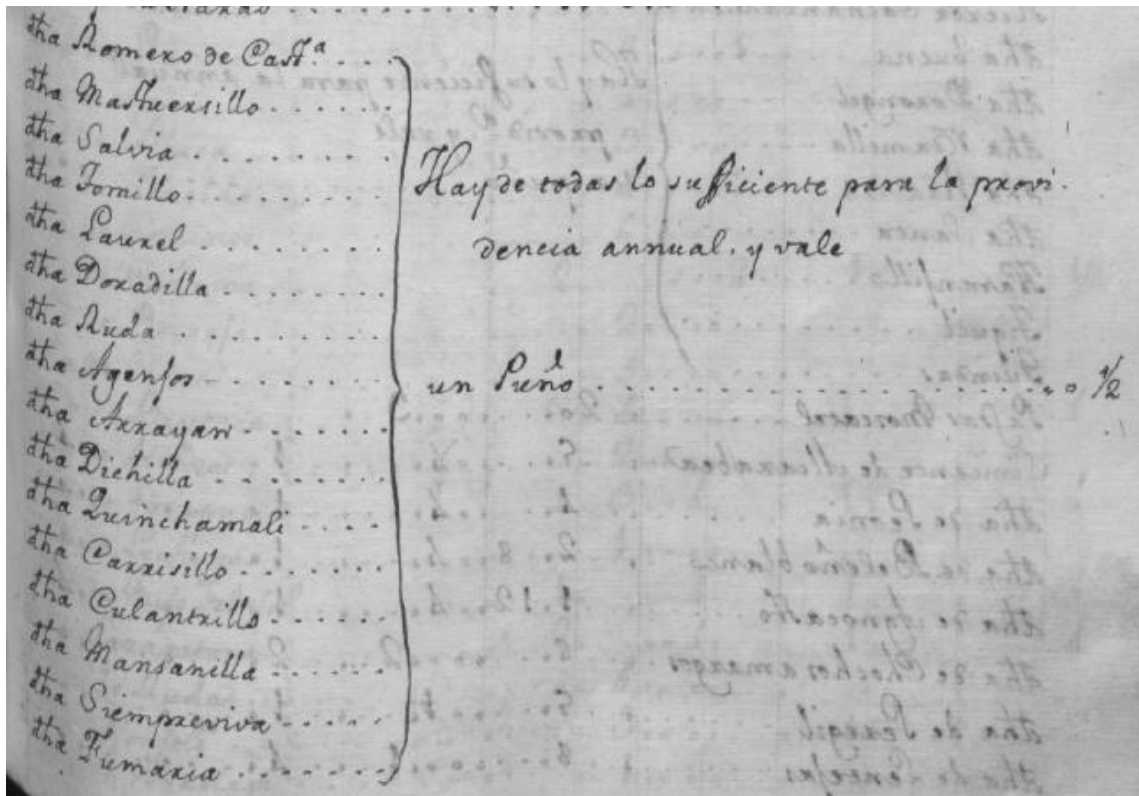 dha Romero de Castª. . . .
dha Mastuersillo . . . . . .
dha Salvia . . . . . . . .
dha Tomillo . . . . . . .
dha Laurel . . . . . . . .
dha Doradilla . . . . . . .
dha Ruda . . . . . . . . .
dha Agenjos . . . . . . .
dha Arrayan . . . . . . .
dha Dichilla . . . . . . .
dha Quinchamali . . . .
dha Carrisillo . . . . . .
dha Culantrillo . . . . .
dha Mansanilla . . . . .
dha Siempreviva . . . .
dha Fumaria . . . . . .
Hay de todas lo suficiente para la provi-
dencia annual. y vale
un . . . . . . . . . . . . . . . . . . . . 0 ½